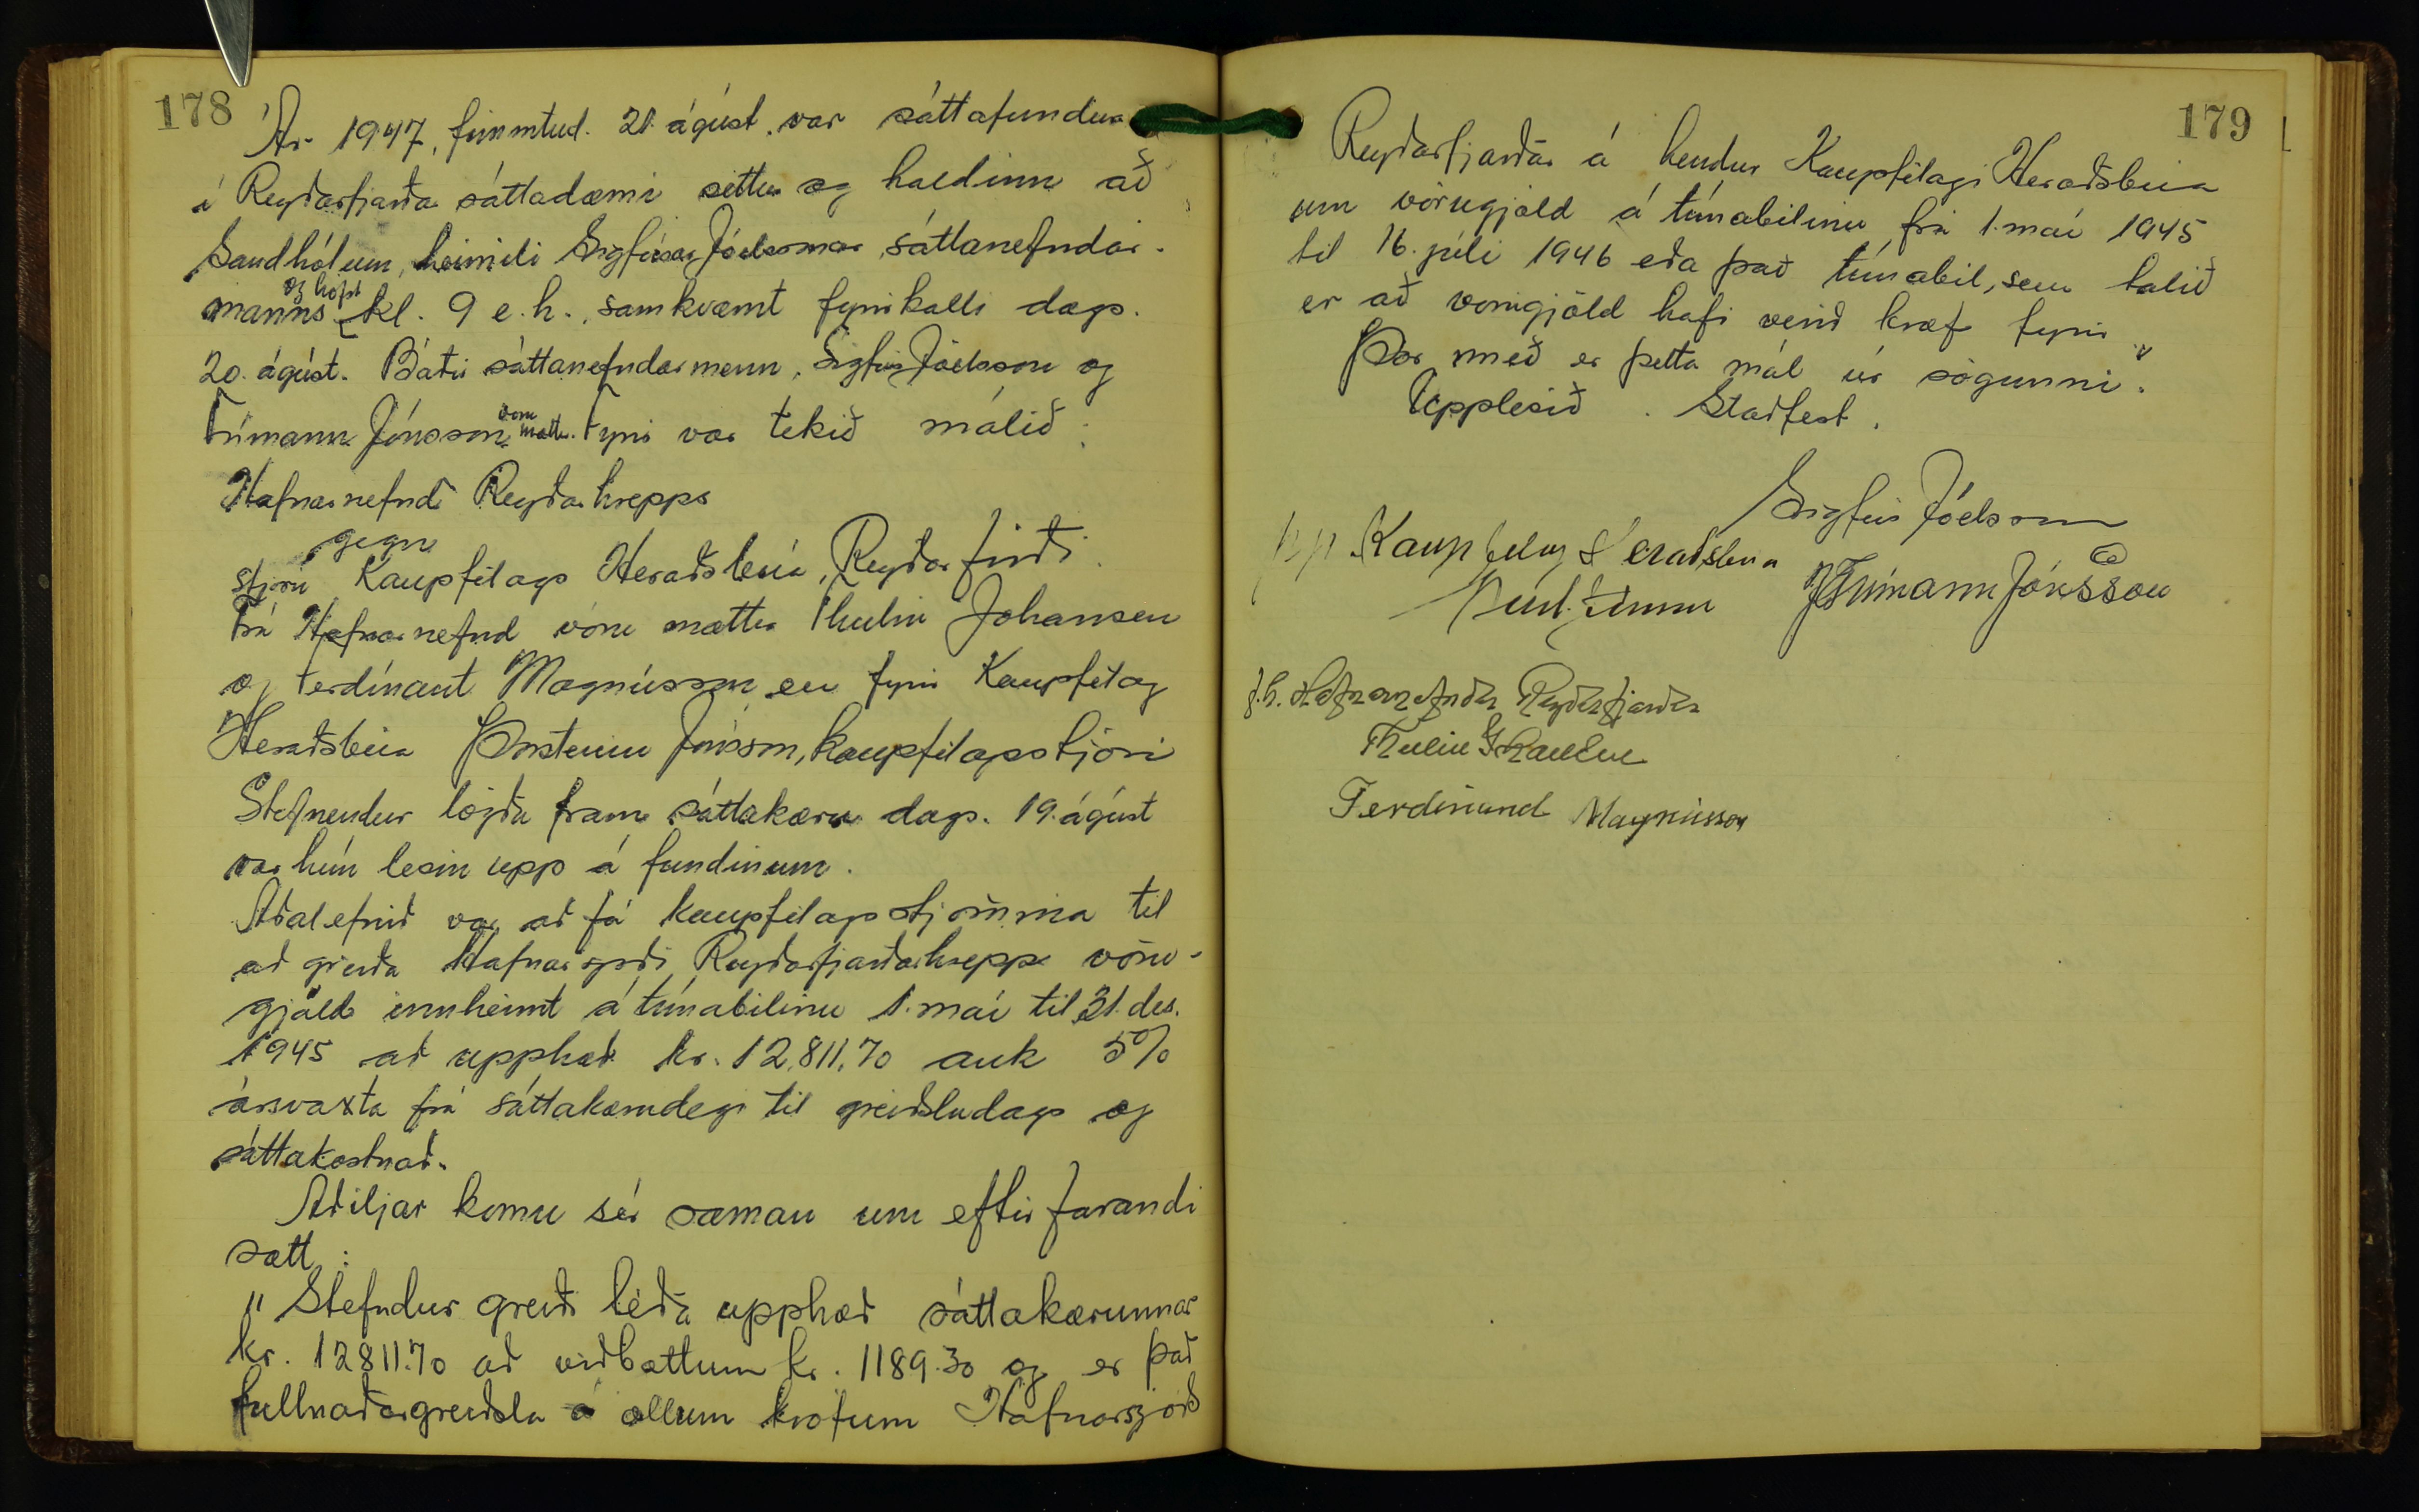 178
Ár 1947, fimmtud. 21. ágúst. var sáttafundur
í Reyðarfjarðar sáttadæmi settur og haldinn að
Sandhólum, heimili Sigfúsar Jóelssonar, sáttanefndar-
manns og hófst kl. 9 e.h., samkvæmt fyrirkalli dags.
20. ágúst. Báðir sáttanefndarmenn, Sigfús Jóelsson og
Frímann Jónsson voru mættir. Fyrir var tekið málið:
Hafnarnefnd Reyðarhrepps
gegn
stjórn Kaupfélags Héraðsbúa, Reyðarfirði.
Frá Hafnarnefnd vóru mættir Thulin Johansen
og Ferdínant Magnússon en fyrir Kaupfélag
Héraðsbúa Þorsteinn Jónsson, kaupfélagsstjóri
Stefnendur lögðu fram sáttakæru dags. 19. ágúst
var hún lesin upp á fundinum.
Aðalefnið var að fá kaupfélagsstjórnina til
að greiða Hafnarsjóði Reyðarfjarðarhrepps vöru-
gjöld innheimt á tímabilinu 1. maí til 31. des.
1945 að upphæð kr. 12.811.70 auk 5%
ársvaxta frá sáttakærudegi til greiðsludags og
sáttakostnað.
Aðiljar komu sér saman um eftirfarandi
sætt:
"Stefndur greiði téða upphæð sáttakærunnar
kr. 12811.70 að viðbættum kr. 1189.30 og er það
fullnaðargreiðsla á öllum kröfum Hafnarsjóðs
179
Reyðarfjarðar á hendur Kaupfélagi Héraðsbúa
um vörugjöld á tímabilinu frá 1. maí 1945
til 16. júlí 1946 eða það tímabil, sem talið
er að vörugjöld hafi verið kræf fyrir"
Þar með er þetta mál úr sögunni.
Upplesið. Staðfest.
Sigfús Jóelsson
pp Kaupfélag Héraðsbúa
Frímann Jónsson
f.h. Hafnarnefndar Reyðarfjarðar
Thulin Johansen
Ferdinand Magnússon